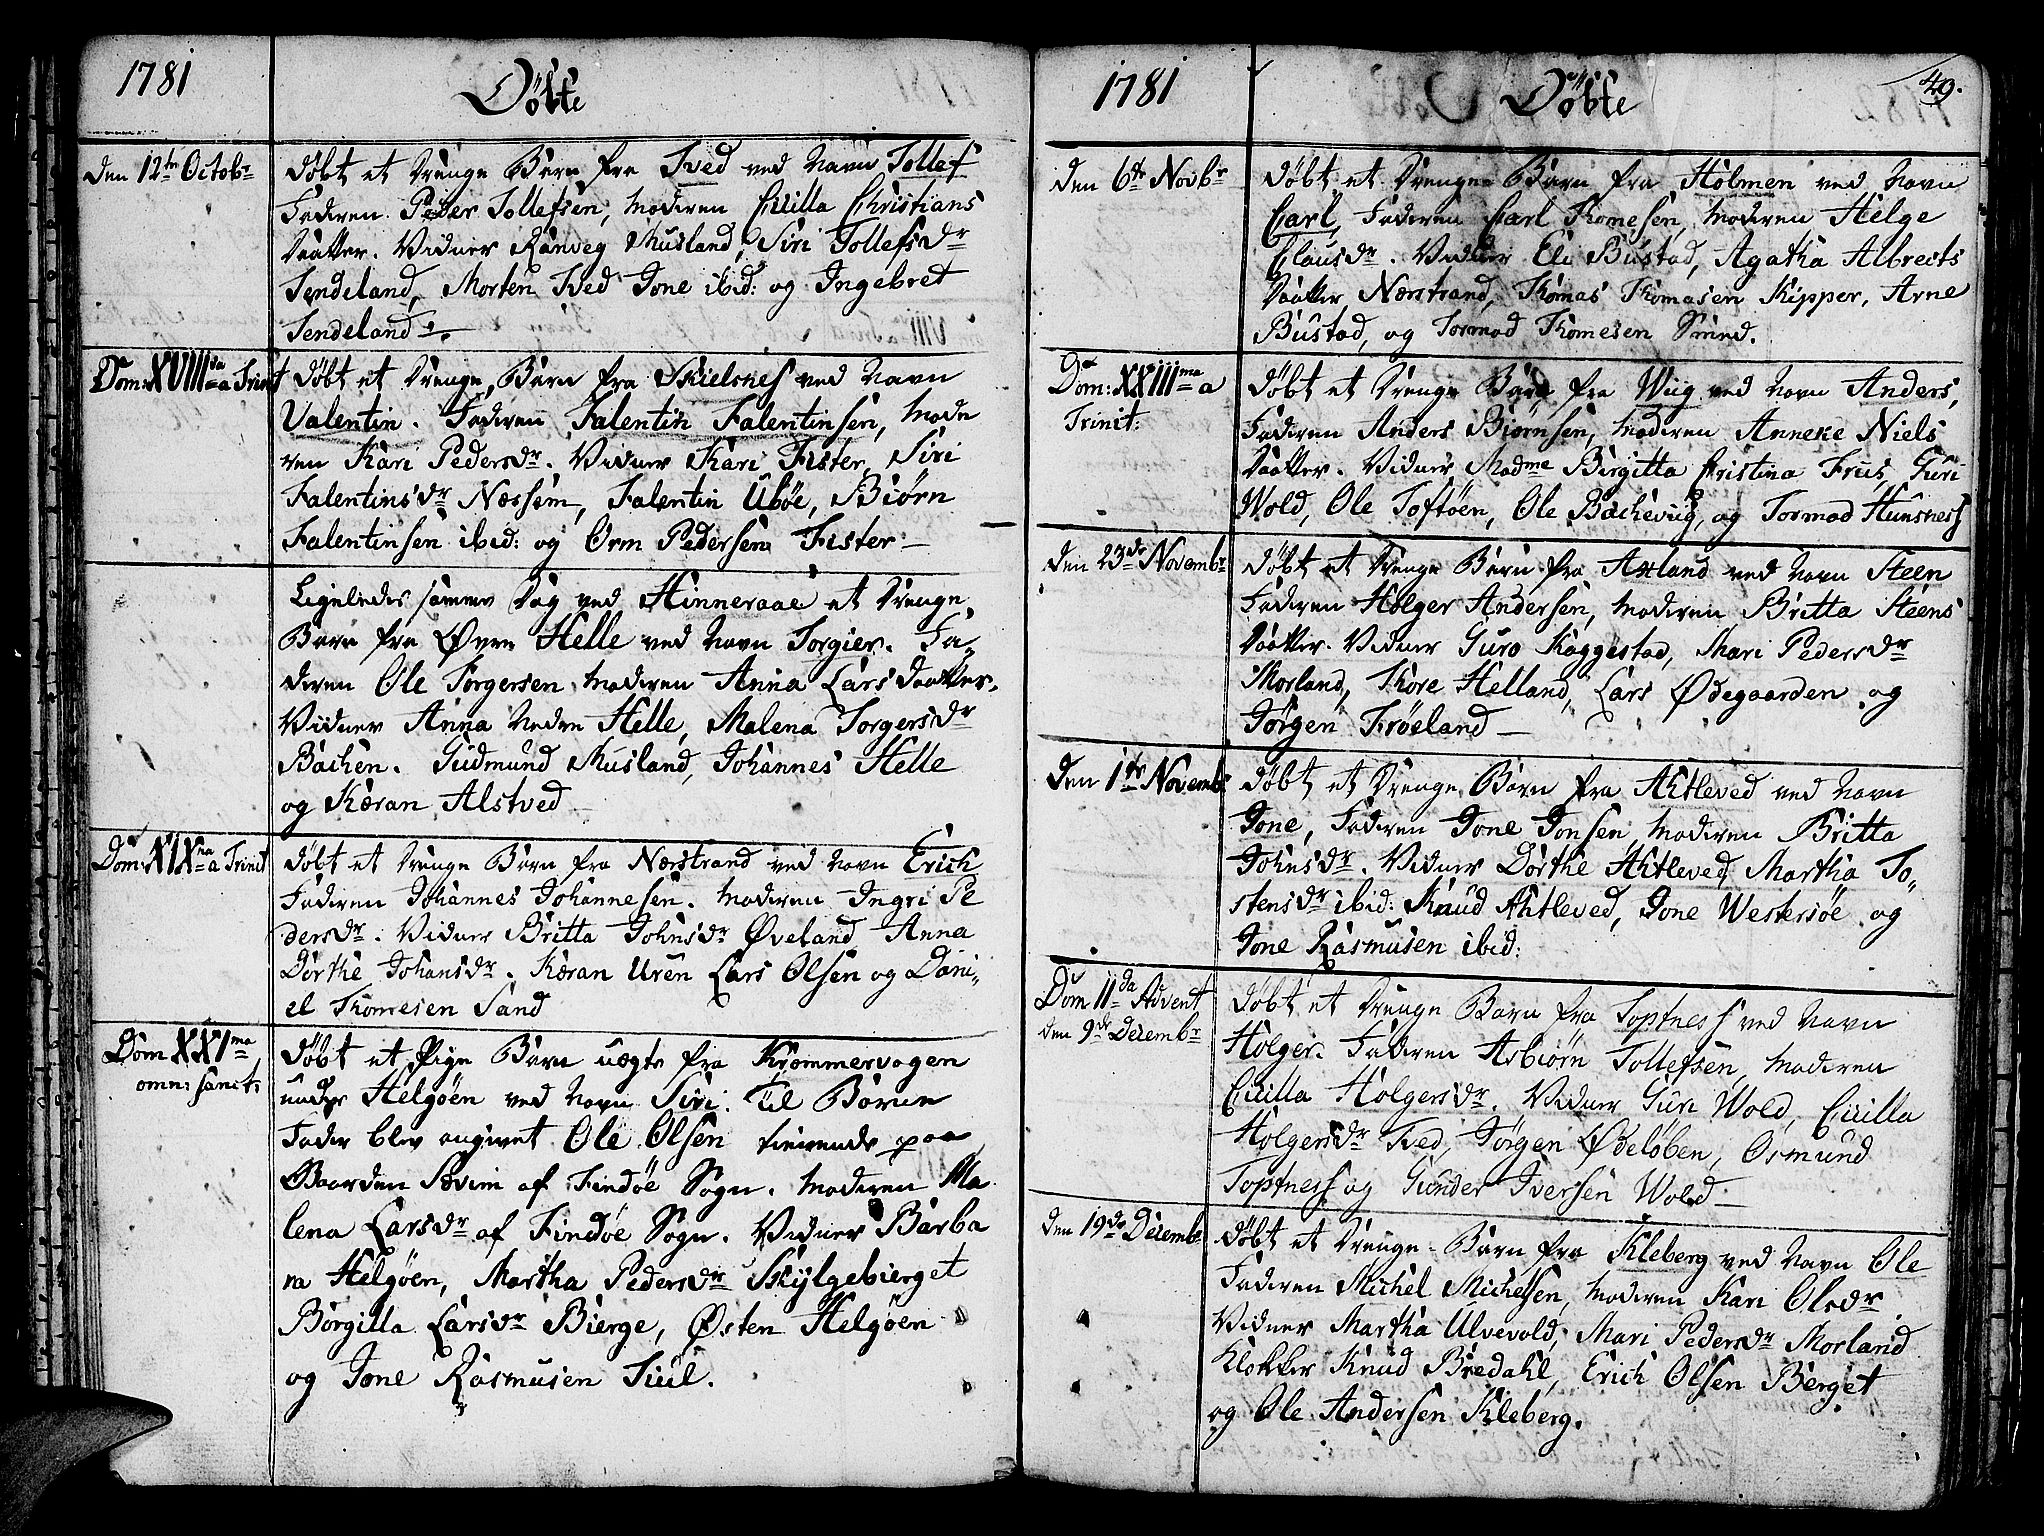 1781
Döbte
den 12te Octobr
Döbt et Drenge Barn fra Tved ved Navn Tollef
Faderen Peder Tollefsen, Moderen Cicilla Christians
Daatter. Vidner Ranveg Musland, Siri Tollefsdr
Tendeland, Morten Tved Jone ibid: og Ingebret
Tendeland.
Dom: XVIIIda a Trinit
Döbt et Drenge Barn fra Skielsnes ved Navn
Valentin. Faderen Falentin Falentinsen, Mode
ren Kari Pedersdr. Vidner Kari Fister, Siri
Falentinsdr Næssem, Falentin Uböe, Biørn
Falentinsen ibid: og Orm Pedersen Fister
Ligeledes samme Dag ved Hinneraae et Drenge
Barn fra Øvre Helle ved Navn Torgier. Fa-
deren Ole Torgersen, Moderen Anna Larsdaatter.
Vidner Anna Nedre Helle, Malena Torgersdr
Bachen. Gudmund Musland, Johannes Helle
og Kæran Alstved
Dom: XIXna a Trinit
Döbt et Drenge Barn fra Nærstrand ved Navn Erich
Faderen Johannes Johannesen. Moderen Ingri Pe
dersdr. Vidner Britta Johnsdr Øveland, Anna
Dorthe Johansdr. Kæran Uren Lars Olsen og Dani-
el Thomesen Sand
Dom XXIma
omn: sanct:
Döbt et Pige Barn uægte fra Krommervogen
under Helgöen ved Navn Siri. Til Barne
Fader blev angivet Ole Olsen tienende paa
Gaarden Sævim af Findöe Sogn. Moderen Ma
lena Larsdr af Findöe Sogn. Vidner Barba
ra Helgöen, Martha Pedersdr Skylgebierget
Borgilla Larsdr Bierge, Østen Helgöen
og Jone Rasmusen Tiul.
1781
Döbte
49.
den 6te Novbr
Döbt et Drenge Barn fra Holmen ved Navn
Carl, Faderen Carl Thomesen, Moderen Helge
Clausdr. Vidner Eli Bustad, Agatha Albrects
Daatter Nærstrand, Thomas Thomasen Kipper, Arne
Bustad, og Tormod Thomesen Smed.
Dom: XXIIIma a
Trinit:
Döbt et Drenge Barn fra Wiig ved Navn Anders,
Faderen Anders Biørnsen, Moderen Anneke Niels
Daatter. Vidner Madme Birgitta Cristina Friis, Guri
Wold, Ole Toftöen, Ole Bachevig, og Tormod Hunsness
den 23de Novembr
Döbt et Drenge Barn fra Axland ved Navn Steen
Faderen Holger Andersen, Moderen Britta Steens
Daatter. Vidner Guro Kaggestad, Mari Pedersdr
Morland, Thore Helland, Lars Ødegaarden og
Jörgen Fröeland
den 1te Novemb
Döbt et Drenge Barn fra Ahtleved ved Navn
Jone, Faderen Jone Jonsen, Moderen Britta
Johnsdr. Vidner Dorthe Ahtleved, Martha To-
stensdr ibid: Knud Ahtleved, Jone Westersöe og
Jone Rasmusen ibid:
Dom IIda Advent
den 9de Decembr
Döbt et Drenge Barn fra Toptness ved Navn
Holger. Faderen Asbiørn Tollefsen, Moderen
Cicilla Holgersdr. Vidner Guri Wold, Cicilla
Holgersdr Tved, Jörgen Ødelöben, Osmund
Toptness og Gunder Iversen Wold
den 19de Decembr
Döbt et Drenge Barn fra Kleberg ved Navn Ole
Faderen Michel Michelsen, Moderen Kari Olsdr
Vidner Martha Ulvevold, Mari Pedersdr Morland
Klokker Knud Bredahl, Erich Olsen Berget
og Ole Andersen Kleberg.